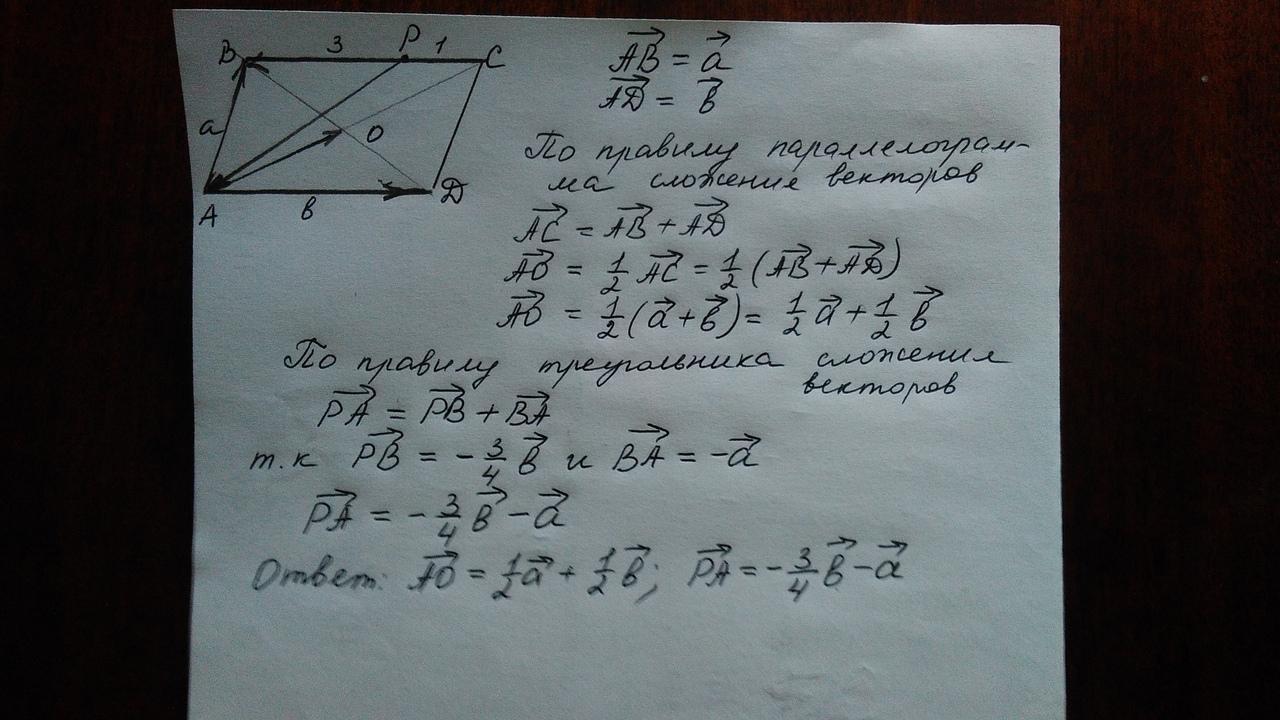 B 3 P 1 C
a O
A в D
AB⃗ = a⃗
AD⃗ = в⃗
По правилу параллелограм-
ма сложения векторов
AC⃗ = AB⃗ + AD⃗
AO⃗ = 1/2 AC⃗ = 1/2 (AB⃗ + AD⃗)
AO⃗ = 1/2 (a⃗ + в⃗) = 1/2 a⃗ + 1/2 в⃗
По правилу треугольника сложения
векторов
PA⃗ = PB⃗ + BA⃗
т.к PB⃗ = - 3/4 в⃗ и BA⃗ = -a⃗
PA⃗ = - 3/4 в⃗ - a⃗
Ответ: AO⃗ = 1/2 a⃗ + 1/2 в⃗; PA⃗ = - 3/4 в⃗ - a⃗